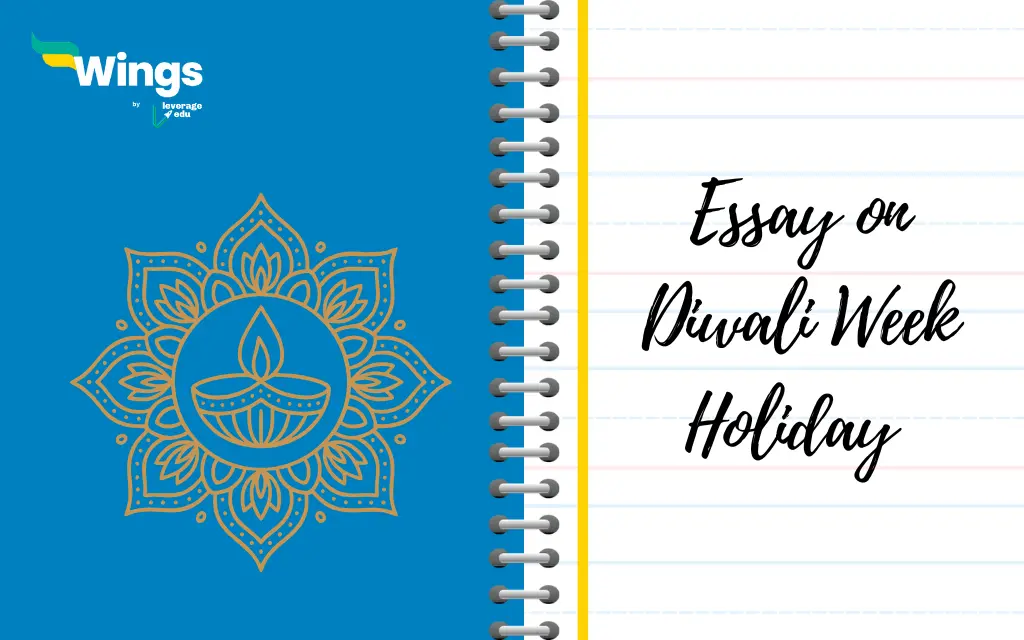 Wings
by leverage
edu
Essay on
Diwali Week
Holiday